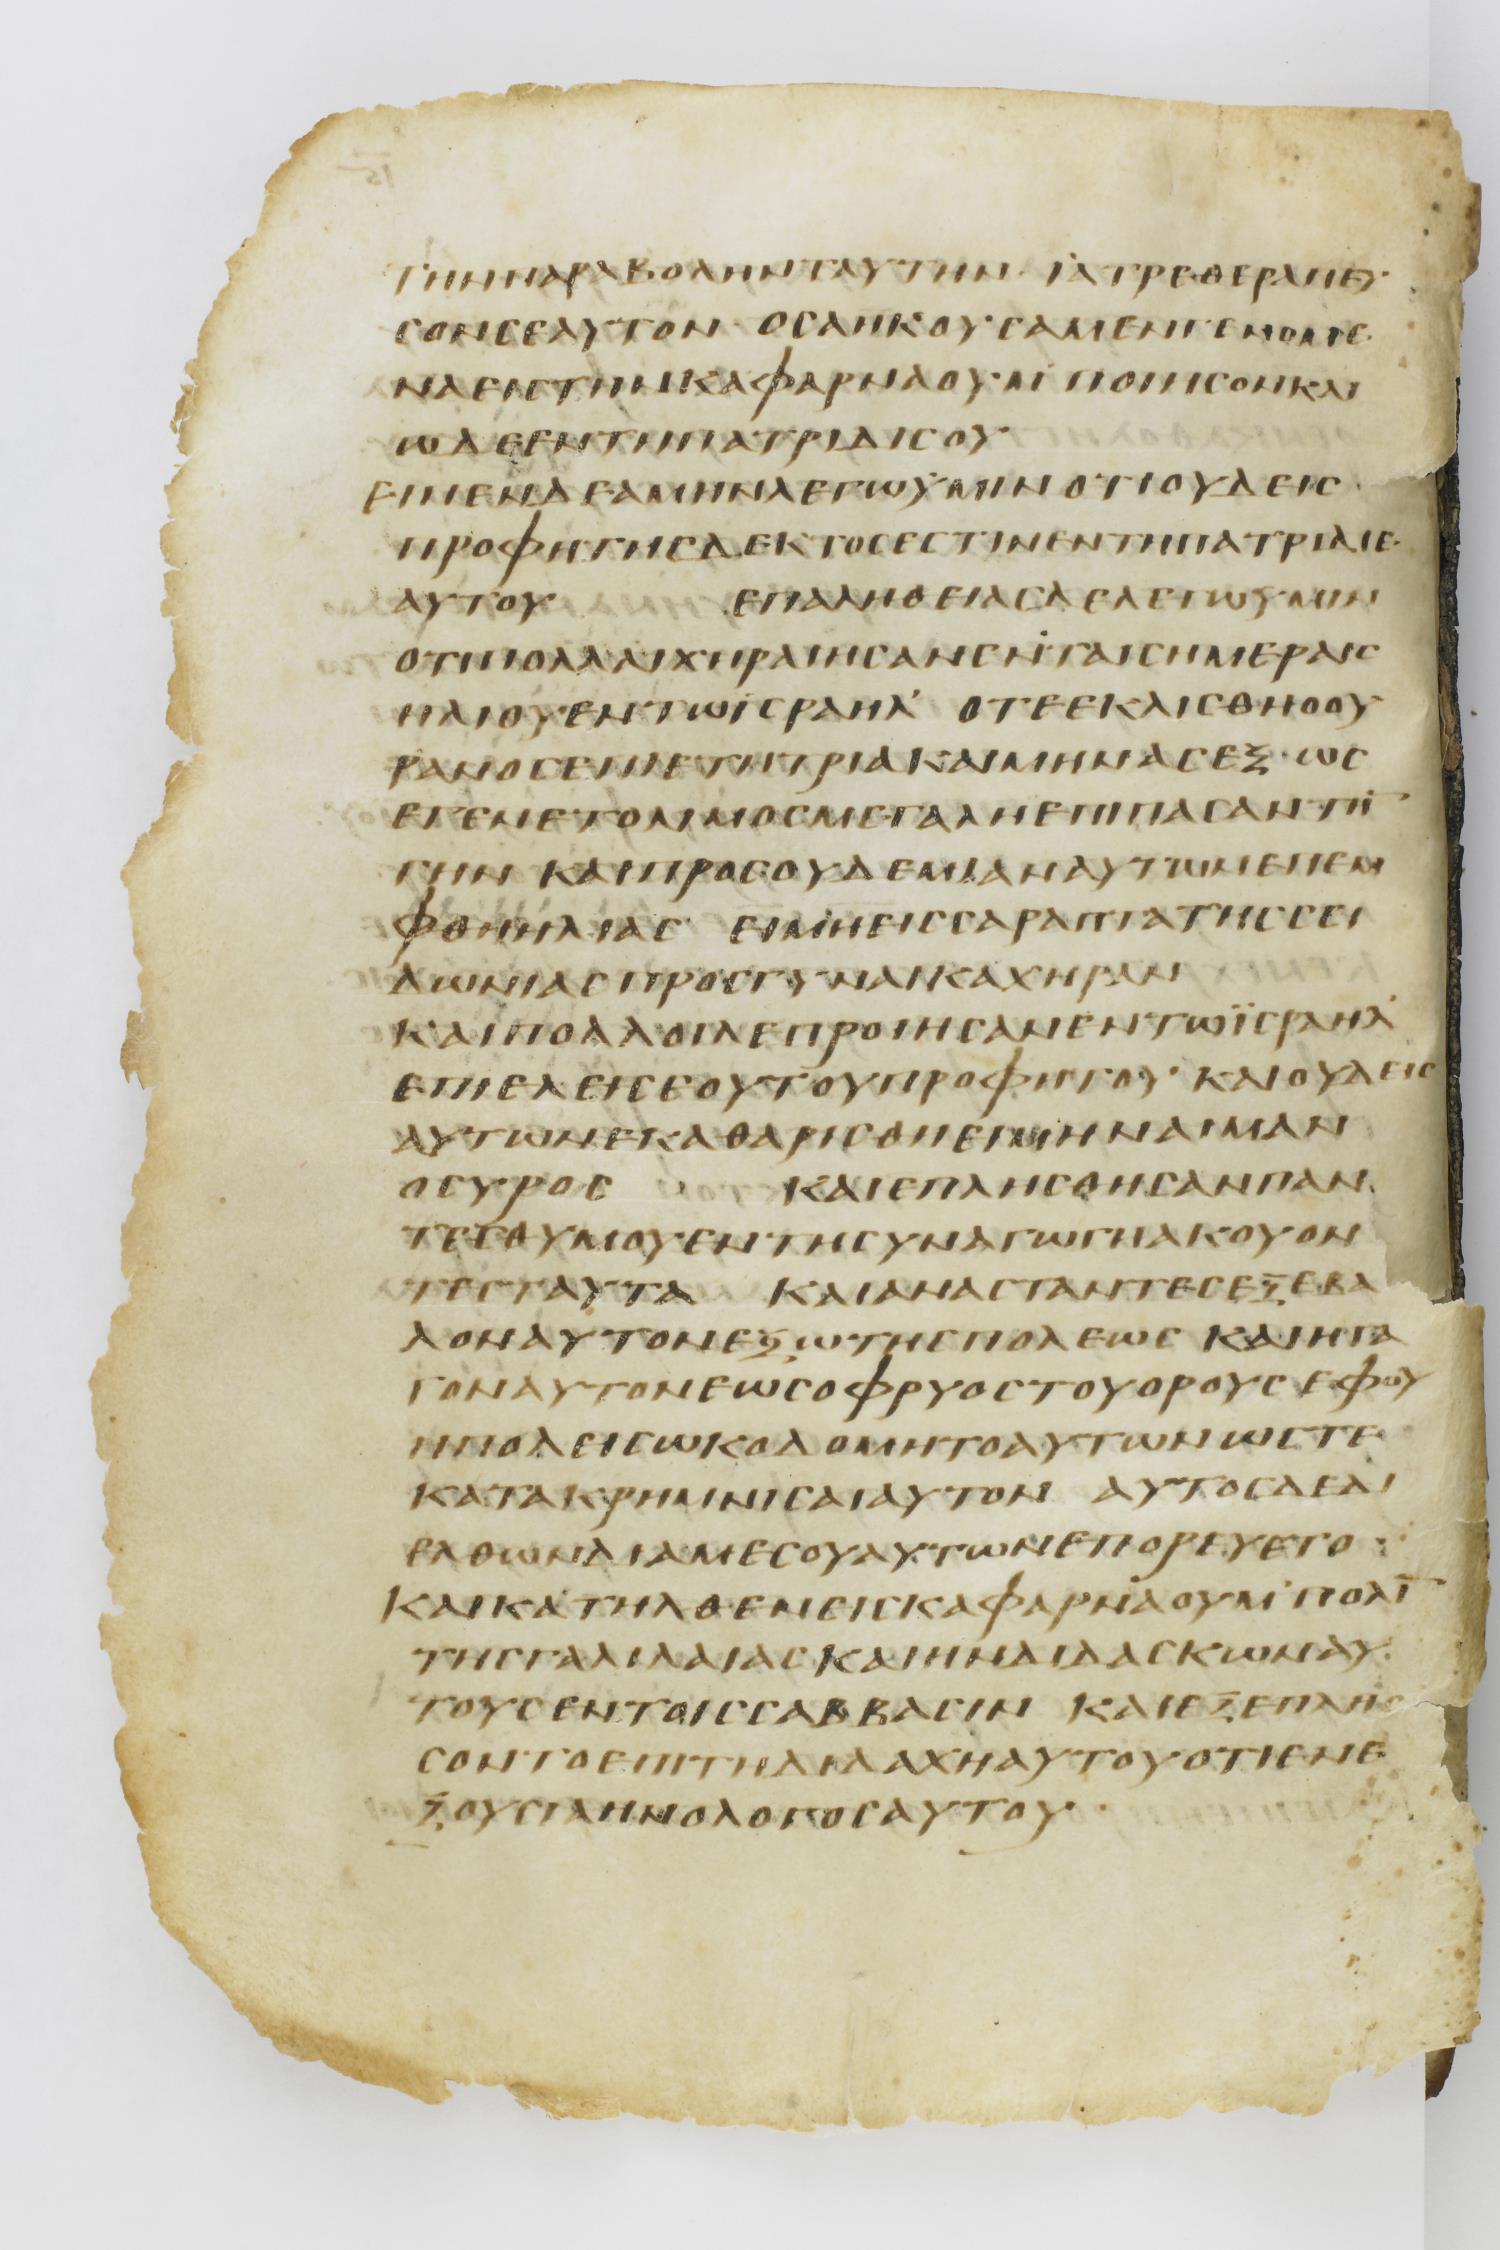 ΤΗΝΠΑΡΑΒΟΛΗΝΤΑΥΤΗΝ ΪΑΤΡΕΘΕΡΑΠΕΥ
ΣΟΝΣΕΑΥΤΟΝ ΟΣΑΗΚΟΥΣΑΜΕΝΓΕΝΟΜΕ
ΝΑΕΙΣΤΗΝΚΑΦΑΡΝΑΟΥΜ ΠΟΙΗΣΟΝΚΑΙ
ΩΔΕΕΝΤΗΠΑΤΡΙΔΙΣΟΥ
ΕΙΠΕΝΔΕΑΜΗΝΛΕΓΩΫΜΙΝΟΤΙΟΥΔΕΙΣ
ΠΡΟΦΗΤΗΣΔΕΚΤΟΣΕΣΤΙΝΕΝΤΗΠΑΤΡΙΔΙΕ
ΑΥΤΟΥ ΕΠΑΛΗΘΕΙΑΣΔΕΛΕΓΩΥΜΙΝ
ΟΤΙΠΟΛΛΑΙΧΗΡΑΙΗΣΑΝΕΝΤΑΙΣΗΜΕΡΑΙΣ
ΗΛΙΟΥΕΝΤΩΙΣΡΑΗΛ ΟΤΕΕΚΛΙΣΘΗΟΟΥ
ΡΑΝΟΣΕΠΙΕΤΗΤΡΙΑΚΑΙΜΗΝΑΣΕΞ ΩΣ
ΕΓΕΝΕΤΟΛΙΜΟΣΜΕΓΑΛΗΕΠΙΠΑΣΑΝΤΗ̅
ΓΗΝ ΚΑΙΠΡΟΣΟΥΔΕΜΙΑΝΑΥΤΩΝΕΠΕΜ
ΦΘΗΗΛΙΑΣ ΕΙΜΗΕΙΣΣΑΡΑΠΤΑΤΗΣΣΕΙ
ΔΩΝΙΑΣΠΡΟΣΓΥΝΑΙΚΑΧΗΡΑΝ
ΚΑΙΠΟΛΛΟΙΛΕΠΡΟΙΗΣΑΝΕΝΤΩΪΣΡΑΗΛ
ΕΠΙΕΛΕΙΣΕΟΥΤΟΥΠΡΟΦΗΤΟΥ ΚΑΙΟΥΔΕΙΣ
ΑΥΤΩΝΕΚΑΘΑΡΙΣΘΗΕΙΜΗΝΑΙΜΑΝ
ΟΣΥΡΟΣ ΚΑΙΕΠΛΗΣΘΗΣΑΝΠΑΝ
ΤΕΣΘΥΜΟΥΕΝΤΗΣΥΝΑΓΩΓΗΑΚΟΥΟΝ
ΤΕΣΤΑΥΤΑ ΚΑΙΑΝΑΣΤΑΝΤΕΣΕΞΕΒΑ
ΛΟΝΑΥΤΟΝΕΞΩΤΗΣΠΟΛΕΩΣ ΚΑΙΗΓΑ
ΓΟΝΑΥΤΟΝΕΩΣΟΦΡΥΟΣΤΟΥΟΡΟΥΣΕΦΟΥ
ΗΠΟΛΕΙΣΩΚΟΔΟΜΗΤΟΑΥΤΩΝΩΣΤΕ
ΚΑΤΑΚΡΗΜΝΙΣΑΙΑΥΤΟΝ ΑΥΤΟΣΔΕΔΙ
ΕΛΘΩΝΔΙΑΜΕΣΟΥΑΥΤΩΝΕΠΟΡΕΥΕΤΟ
ΚΑΙΚΑΤΗΛΘΕΝΕΙΣΚΑΦΑΡΝΑΟΥΜΠΟΛΙ̅
ΤΗΣΓΑΛΙΛΑΙΑΣΚΑΙΗΝΔΙΔΑΣΚΩΝΑΥ
ΤΟΥΣΕΝΤΟΙΣΣΑΒΒΑΣΙΝ ΚΑΙΕΞΕΠΛΗΣ
ΣΟΝΤΟΕΠΙΤΗΔΙΔΑΧΗΑΥΤΟΥΟΤΙΕΝΕ
ΞΟΥΣΙΑΗΝΟΛΟΓΟΣΑΥΤΟΥ